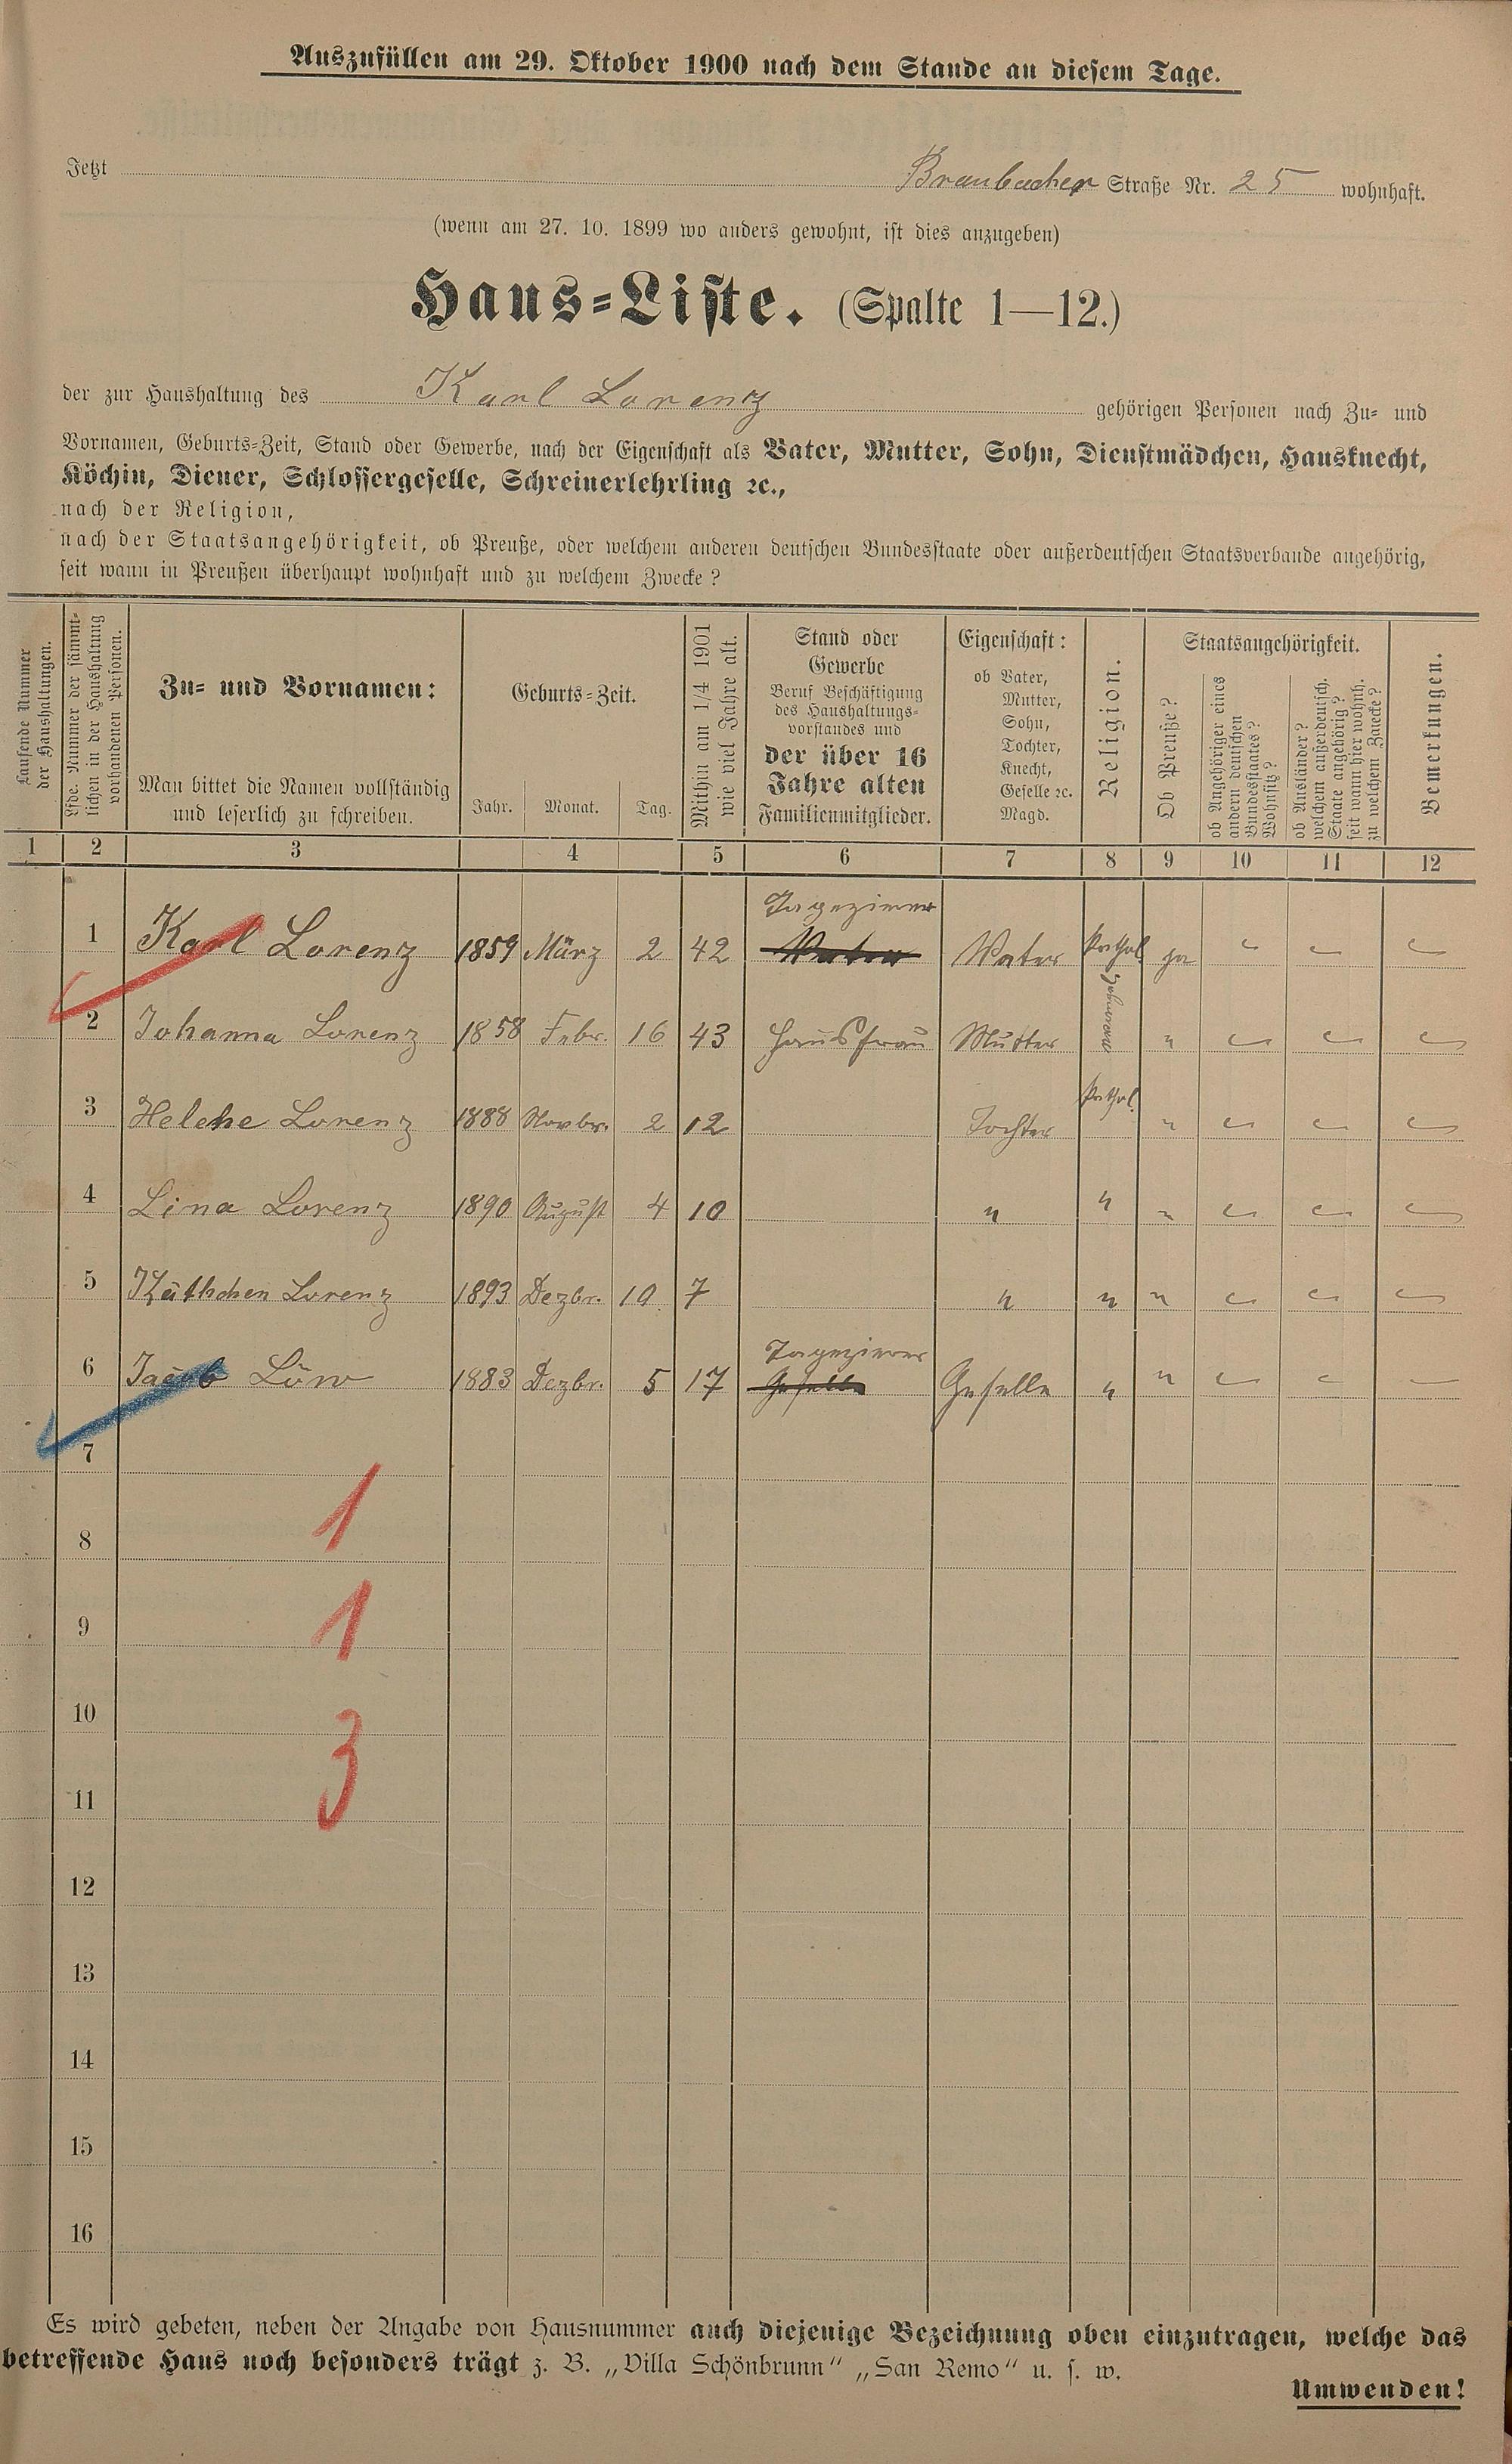 Auszufüllen am 29. Oktober 1900 nach dem Stande an diesem Tage.
Jetzt Braubacher Straße Nr. 25 wohnhaft.
(wenn am 27. 10. 1899 wo anders gewohnt, ist dies anzugeben)
Haus-Liste. (Spalte 1—12.)
der zur Haushaltung des Karl Lorenz gehörigen Personen nach Zu- und
Vornamen, Geburts-Zeit, Stand oder Gewerbe, nach der Eigenschaft als Vater, Mutter, Sohn, Dienstmädchen, Hausknecht,
Köchin, Diener, Schlossergeselle, Schreinerlehrling ꝛc.,
nach der Religion,
nach der Staatsangehörigkeit, ob Preuße, oder welchem anderen deutschen Bundesstaate oder außerdeutschen Staatsverbande angehörig,
seit wann in Preußen überhaupt wohnhaft und zu welchem Zwecke?
Laufende Nummer
der Haushaltungen.
Lfde. Nummer der sämmt-
lichen in der Haushaltung
vorhandenen Personen.
Zu- und Vornamen:
Man bittet die Namen vollständig
und leserlich zu schreiben.
Geburts-Zeit.
Jahr. Monat. Tag.
Mithin am 1/4 1901
wie viel Jahre alt.
Stand oder
Gewerbe
Beruf Beschäftigung
des Haushaltungs-
vorstandes und
der über 16
Jahre alten
Familienmitglieder.
Eigenschaft:
ob Vater,
Mutter,
Sohn,
Tochter,
Knecht,
Geselle ꝛc.
Magd.
Religion.
Staatsangehörigkeit.
Ob Preuße?
ob Angehöriger eines
andern deutschen
Bundesstaates?
Wohnsitz?
ob Ausländer?
welchem außerdeutsch.
Staate angehörig?
seit wann hier wohnh.
zu welchem Zwecke?
Bemerkungen.
1 2 3 4 5 6 7 8 9 10 11 12
Tapezierer
1 Karl Lorenz 1859 März 2 42 Vater Vater Kathol. ja
2 Johanna Lorenz 1858 Febr. 16 43 Hausfrau Mutter "
3 Helene Lorenz 1888 Novbr. 2 12 Tochter Kathol. "
4 Lina Lorenz 1890 August 4 10 " " "
5 Käthchen Lorenz 1893 Dezbr. 10 7 " " "
Tapezierer
6 Jacob Löw 1883 Dezbr. 5 17 Geselle Geselle " "
7
1
8
1
9
10
3
11
12
13
14
15
16
Es wird gebeten, neben der Angabe von Hausnummer auch diejenige Bezeichnung oben einzutragen, welche das
betreffende Haus noch besonders trägt z. B. „Villa Schönbrunn“ „San Remo“ u. s. w.
Umwenden!